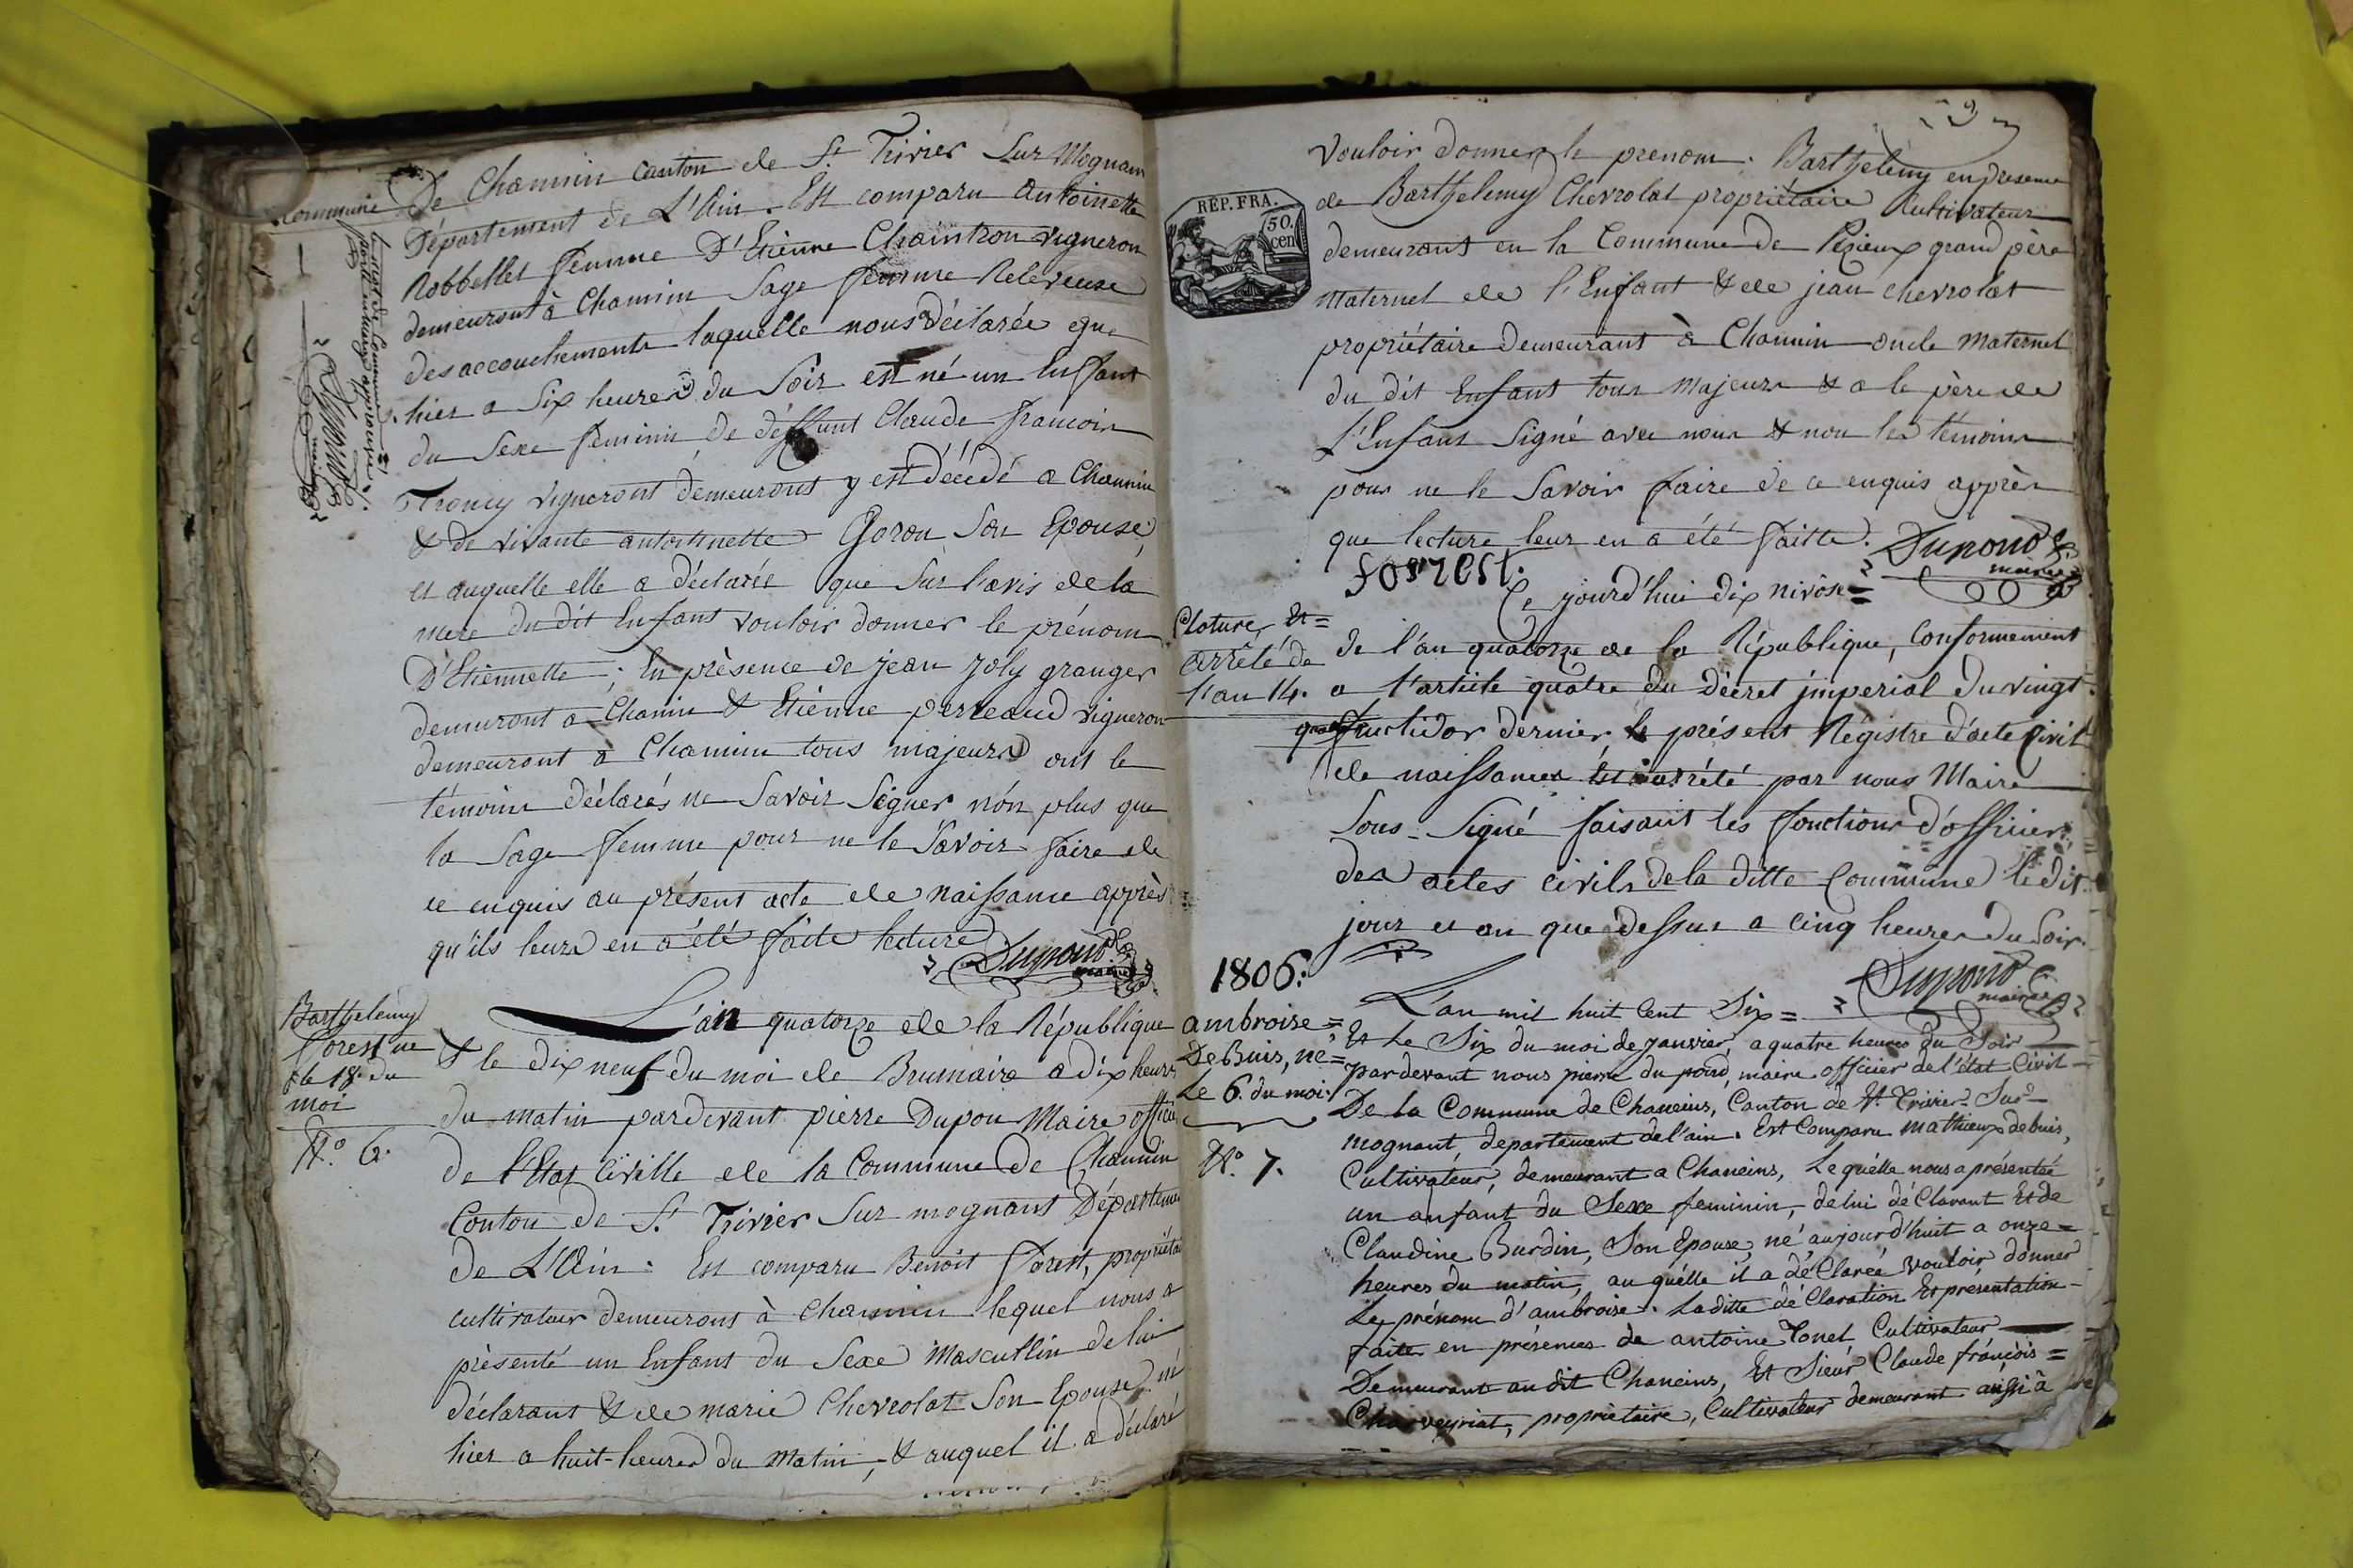 Commune De Chamnin canton de St Trivier Sur Mognam
Département de L'Ain. Est comparu Antoinette
Robbellet femme D'Etiènne Chaintron vigneron
demeurant à Chamin Sage femme Releveuse
des accouchements laquelle nous a déclarée que
hier a Six heures du Soir est né un Enffant
du Sexe feminin de déffunt Claude francois
Troncy vigneront demeuronts y est Décédé a Chamnin
& de vivante antoitnette Goron Son Epouse
et auquelle elle a déclarée que Sur l'avis de la
mere du dit Enfant vouloir donner le prénom
D'Etiennette; En présence de jean Joly granger
demuront a Chamin & Etiènne perreaud vigneron
demeuront a Chaminn tous majeurs ont le
témoins déclarés ne Savoir Signer nón plus que
la Sage femme pour ne le Savoir faire de
ce enquis au présent acte de naissance apprès
qu'ils leurs en a été faite lecture
Dupond
maire
le mot de Commune
porté en marge approuvé
Dupond
maire
Barthelemy
forest né
le 18 du
moi
N.º 6.
L'an quatorze de la République
& le dix neuf du moi de Brumaire a dix heures
du matin pardevant pierre Dupon Maire officier
de l'Etat Civille de la Commune de Chamnin
Conton de St Trivier Sur mognant Départemen
de L'Ain: Est comparu Benoit forest, propriétai
cultivateur demeurons à Chamnin lequel nous a
présenté un Enfant du Sexe Mascullin de lui
déclarant & de marie Chevrolat Son Epouse né
hier a huit-heures du Matin; & auquel il a déclaré
vouloir donner le prenom. Barthelemy en presence
de Barthelemy Chevrolat propriétaire Cultivateur
demeurant en la Commune de Pezieux grand père
maternel de l'Enfant & de jean chevrolat
propriétaire demeurant à Chamnin oncle maternel
du dit Enfant tous majeurs & a le père de
L'Enfant Signé avec nous & non les témoins
pour ne le Savoir faire de ce enquis apprès
que lecture leur en a été faitte. Dupond
maire
forest.
REP. FRA.
50.
cen
Cloture Et =
arrêté de
l'an 14.
Ce jourd'hui dix nivôse =
de l'an quatorze de la République, Conformement
a l'article quatre du Décret jmperial du vingt-
quatre fructidor dernier le présent Régistre d'acte Civil
de naissances Est arrété par nous Maire
Sous-Signé faisant les fonctions d'officier
des actes civils de la ditte Commune le dit
jour et an que dessus a cinq heures du Soir.
Dupond
maire
1806.
ambroise =
De Buis, né =
Le 6. du moi.
N.º 7.
L'an mil huit Cent Six =
Et Le Six du moi de janvier, a quatre heures du Soir
pardevant nous pierre du pond, maire officier de l'état Civil -
De la Commune de Chaneins, Canton de St. Trivier-Sur-
mognant, departement de l'ain. Est Comparu mathieux debuis,
Cultivateur, demeurant a Chaneins, Le quélle nous a présentéé
un anfant du Sexe feminin, de lui dé Clarant Et de
Claudine Burdin, Son Epouse, né aujourd'huit a onze =
heures du matin, au quélle il a dé Clarée vouloir donner
Le prénom d'ambroise. La ditte dé Claration Et présentation -
faite en présences de antoine Tonel Cultivateur
Demeurant au dit Chaneins, Et Sieur Claude francois =
Charveyriat, propriétaire, Cultivateur demeurant aussi à